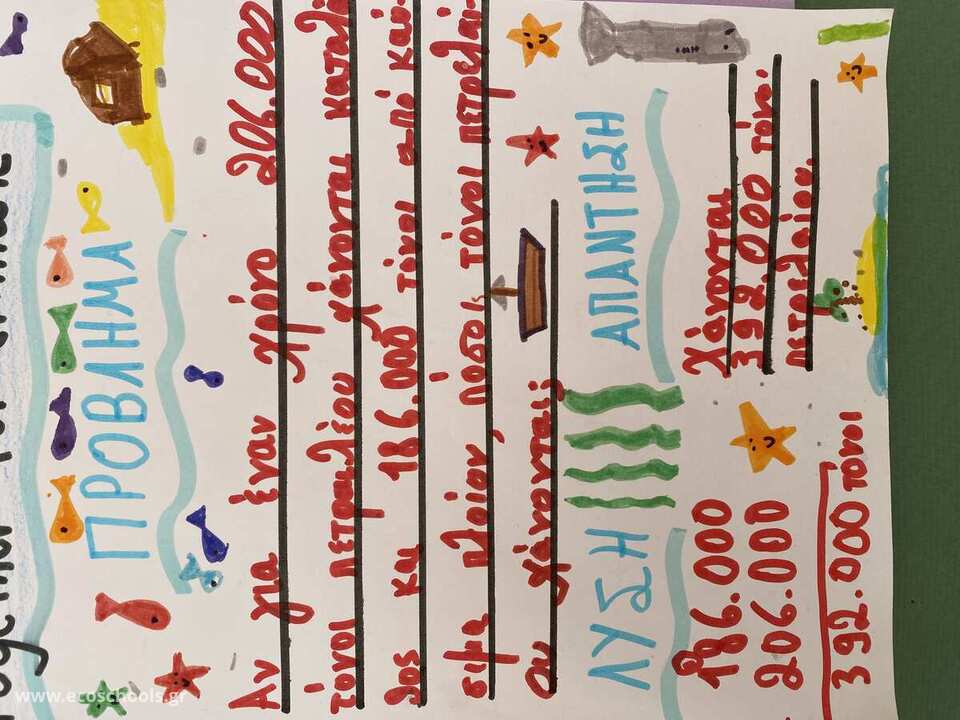 ΠΡΟΒΛΗΜΑ
Αν για έναν χρόνο 206.000
τόνοι πετρελέου χάνονται κατα λά
θος και 186.000 τόνοι από καυ-
σιμα πλοίων, πόσοι τόνοι πετρελαί-
ου χάνονται;
ΛΥΣΗ
186.000
206.000
392.000 τόνοι
ΑΠΑΝΤΗΣΗ
Χάνονται
392.000 τόνοι
πετρελαίου.
www.ecoschools.gr